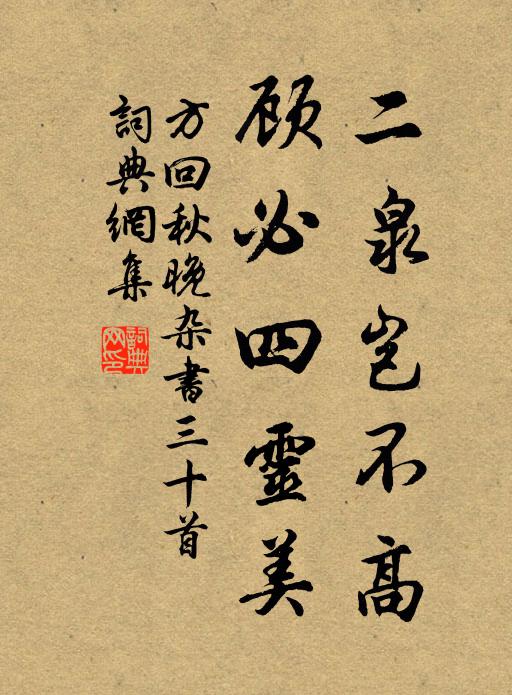 二泉岂不高
顾必四靈美
方回秋晚杂書三十首
詞典網集
詞典网印